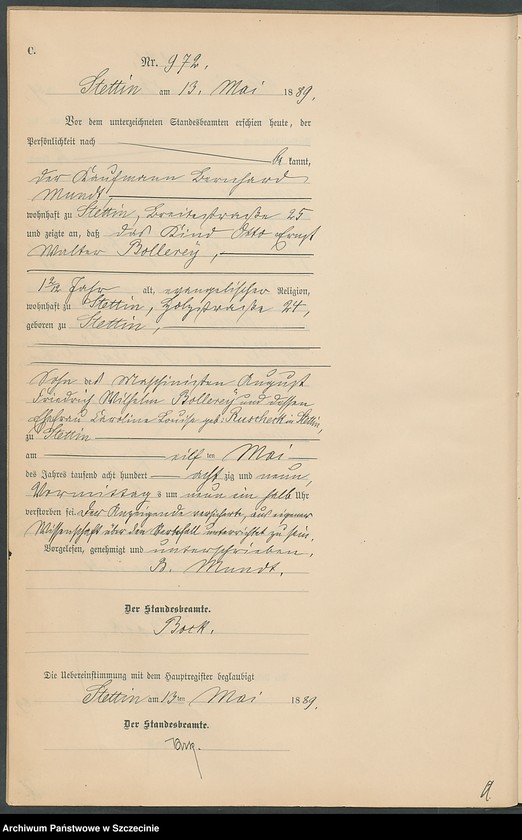 C.
Nr. 972.
Stettin am 13. Mai 1889.
Vor dem unterzeichneten Standesbeamten erschien heute, der
Persönlichkeit nach
be kannt,
der Kaufmann Bernhard
Mundt,
wohnhaft zu Stettin, Breitestraße 25
und zeigte an, daß das Kind Otto Ernst
Walter Bollerey,
1 1/2 Jahr alt, evangelischer Religion,
wohnhaft zu Stettin, Holzstraße 24,
geboren zu Stettin,
Sohn des Maschinisten August
Friedrich Wilhelm Bollerey und dessen
Ehefrau Caroline Louise geb. Ruscheck in Stettin,
zu Stettin
am eilf ten Mai
des Jahres tausend acht hundert acht zig und neun,
Vormittags um neun im halb Uhr
verstorben sei. Der Anzeigende versicherte, aus eigener
Wissenschaft über den Sterbefall unterrichtet zu sein.
Vorgelesen, genehmigt und unterschrieben.
B. Mundt.
Der Standesbeamte.
Bock.
Die Uebereinstimmung mit dem Hauptregister beglaubigt
Stettin am 13ten Mai 1889.
Der Standesbeamte.
Archiwum Państwowe w Szczecinie